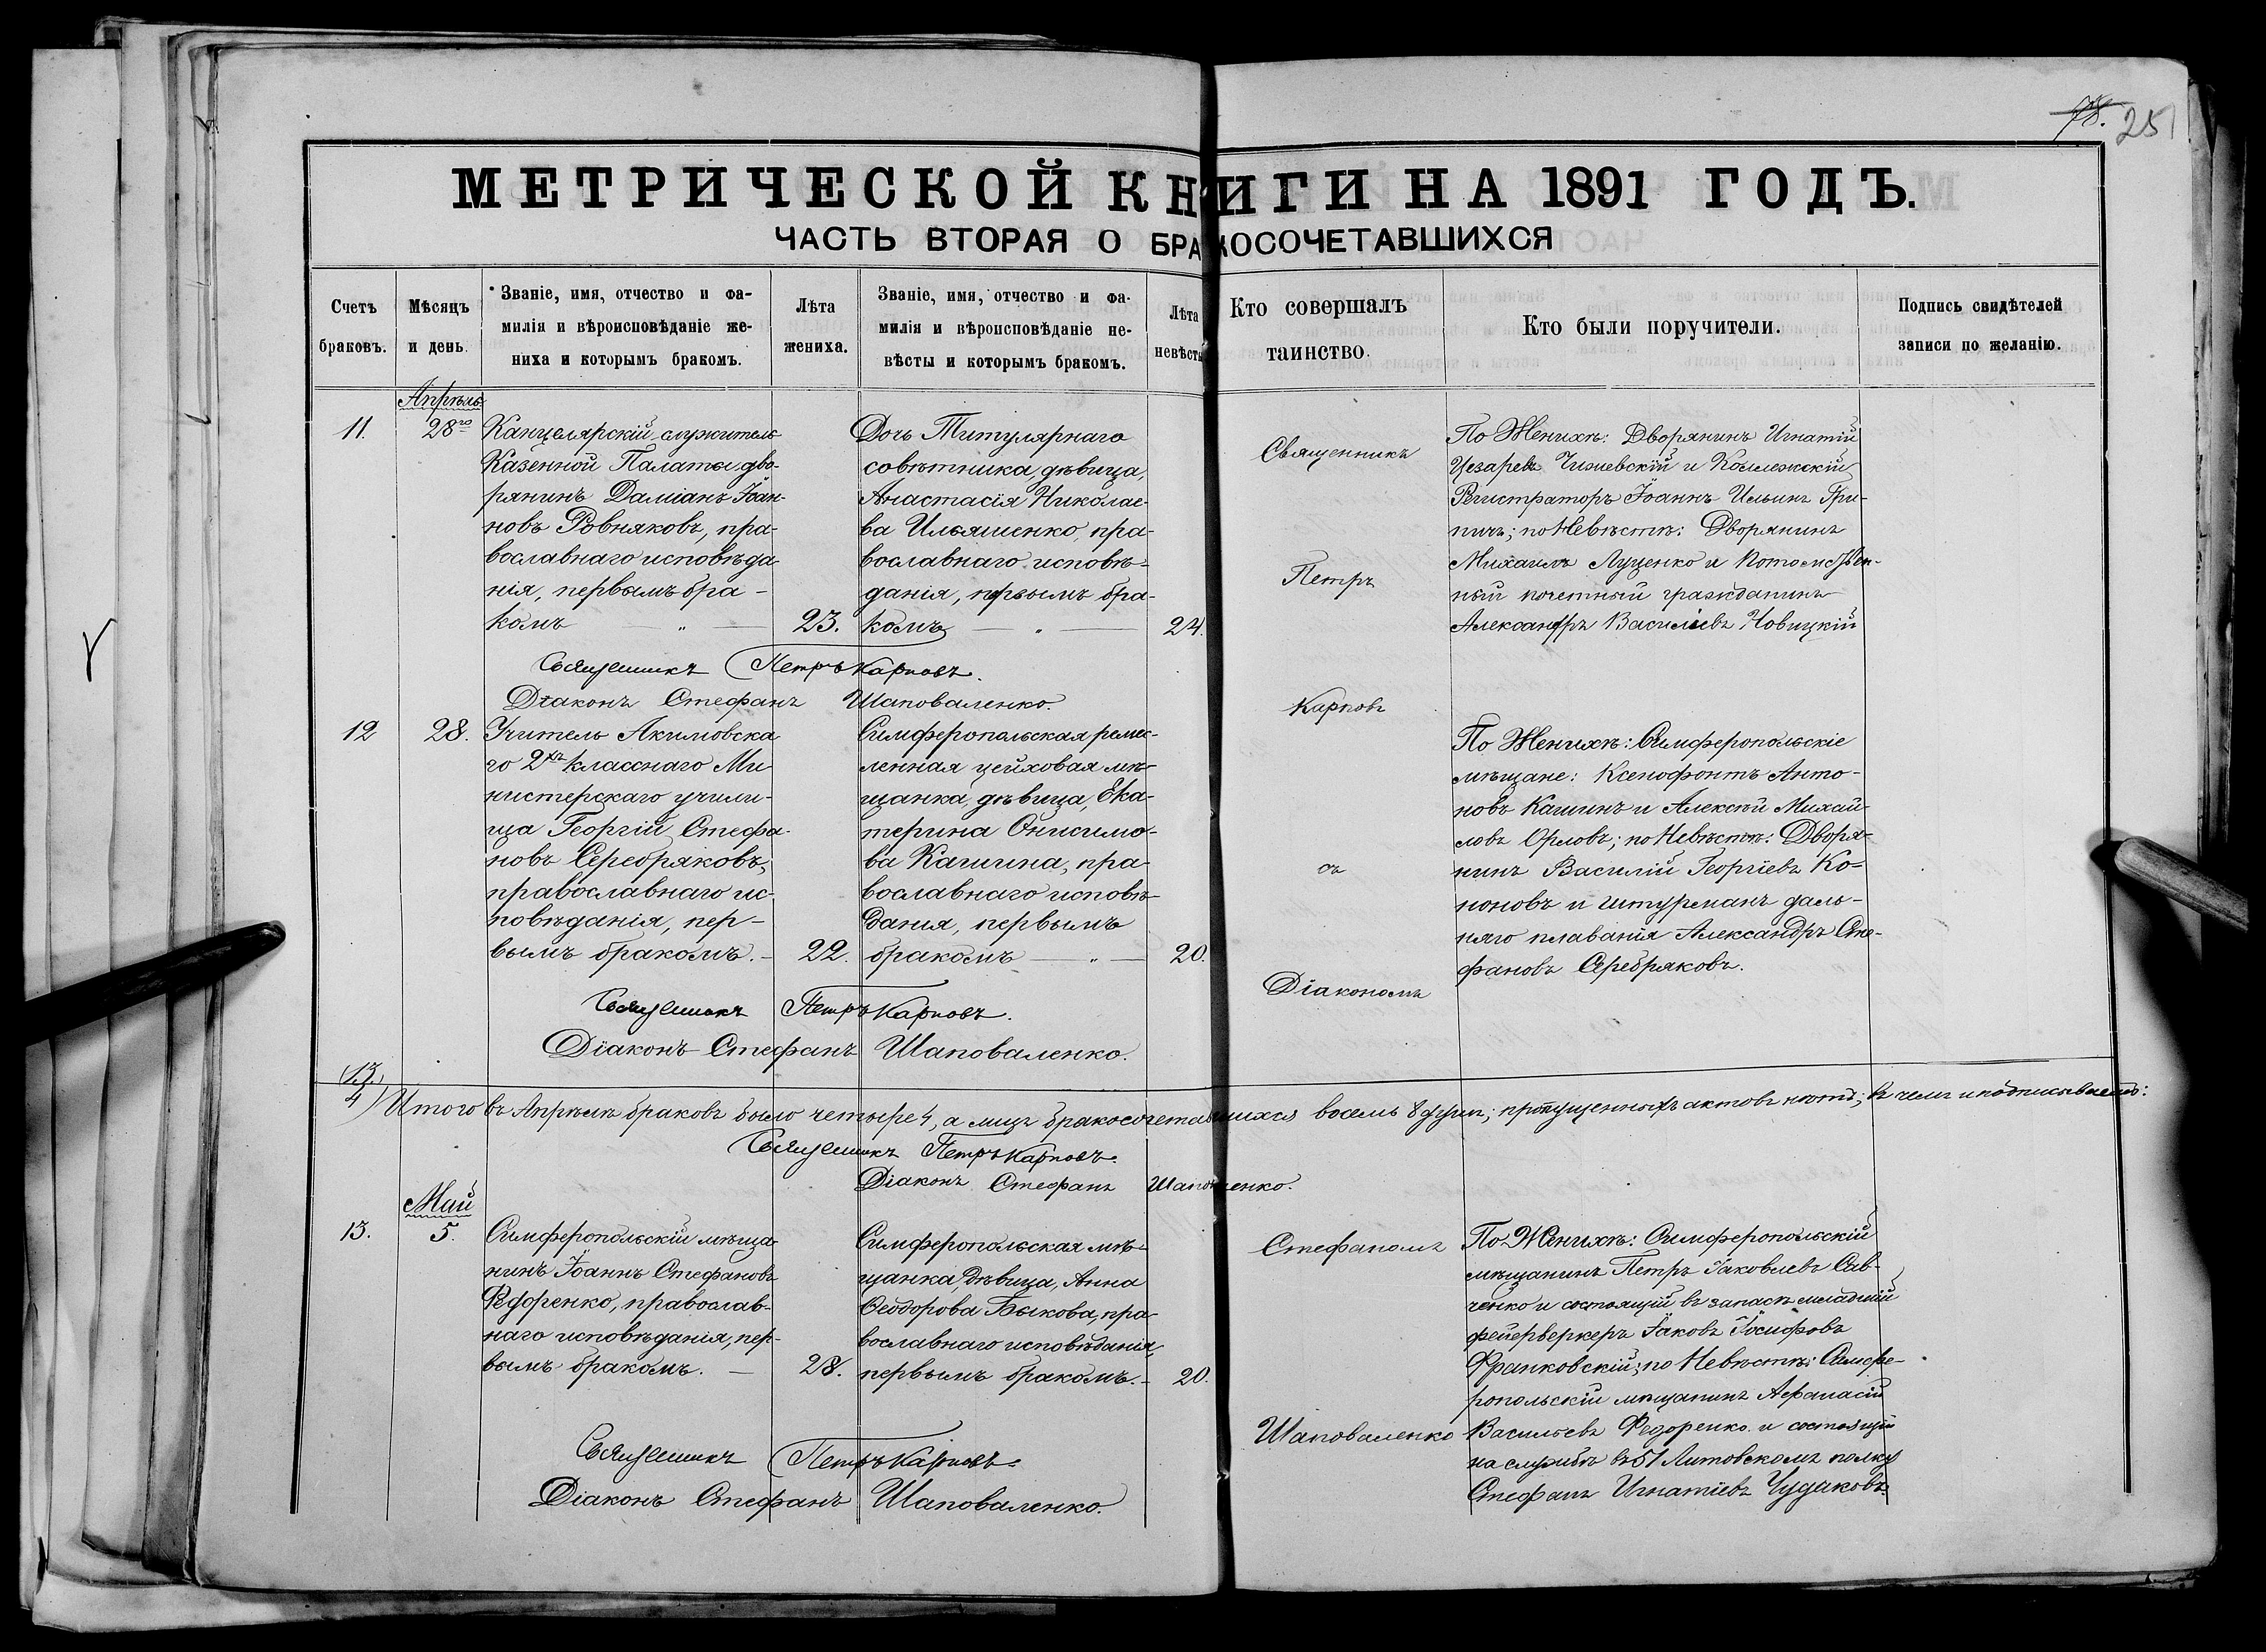 78. 25
МЕТРИЧЕСКОЙ КНИГИ НА 1891 ГОДЪ.
ЧАСТЬ ВТОРАЯ О БРАКОСОЧЕТАВШИХСЯ
Счетъ
браковъ.
Мѣсяцъ
и день.
Званіе, имя, отчество и фа-
милія и вѣроисповѣданіе же-
ниха и которымъ бракомъ.
Лѣта
жениха.
Званіе, имя, отчество и фа-
милія и вѣроисповѣданіе не-
вѣсты и которымъ бракомъ.
Лѣта
невѣсты
Кто совершалъ
таинство.
Кто были поручители.
Подпись свидѣтелей
записи по желанію.
Апрѣль
11.
28го
Канцелярскій служитель
Казенной Палаты дво-
рянинъ Даміанъ Іоан-
новъ Ровняковъ, пра-
вославнаго исповѣда
нія, первымъ бра-
комъ — „ —
23.
Дочь Титулярнаго
совѣтника, дѣвица,
Анастасія Николае-
ва Ильяшенко, пра-
вославнаго исповѣ-
данія, первымъ бра-
комъ — „ —
24.
Священникъ
Петръ
Карповъ
съ
Діакономъ
По Женихѣ: Дворянинъ Игнатій
Цезаревъ Чижевскій и Коллежскій
Регистраторъ Іоаннъ Ильинъ Гри-
пичъ; по Невѣстѣ: Дворянинъ
Михаилъ Луценко и Потомствен-
ный почетный гражданинъ
Александръ Василіевъ Новицкій
Священникъ Петръ Карповъ.
Діаконъ Стефанъ Шаповаленко.
12
28.
Учитель Акимовска
го 2хъ класснаго Ми
нистерскаго учили-
ща Георгій Стефа-
новъ Серебряковъ,
православнаго ис-
повѣданія, пер-
вымъ бракомъ. —
22.
Симферопольская ремес-
ленная цейховая мѣ-
щанка, дѣвица, Ека-
терина Онисимо-
ва Кашина, пра-
вославнаго исповѣ-
данія, первымъ
бракомъ — „ —
20.
По Женихѣ: Симферопольскіе
мѣщане: Ксенофонтъ Анто-
новъ Кашинъ и Алексѣй Михай-
ловъ Орловъ; по Невѣстѣ: Дворя-
нинъ Василій Георгіевъ Ко-
ноновъ и штурманъ даль-
няго плаванія Александръ Сте-
фановъ Серебряковъ.
Священникъ Петръ Карповъ.
Діаконъ Стефанъ Шаповаленко.
(13.)
4) Итого въ Апрѣлѣ браковъ было четыре 4, а лицъ бракосочетавшихся восемь 8 душъ; пропущенныхъ актовъ нѣтъ; въ чемъ и подписываемся:
Священникъ Петръ Карповъ.
Діаконъ Стефанъ Шаповаленко.
Май
13.
5.
Симферопольскій мѣща-
нинъ Іоаннъ Стефановъ
Федоренко, православ-
наго исповѣданія, пер-
вымъ бракомъ. —
28.
Симферопольская мѣ-
щанка, дѣвица, Анна
Ѳеодорова Быкова, пра-
вославнаго исповѣданія,
первымъ бракомъ. —
20.
Стефаномъ
Шаповаленко
По Женихѣ: Симферопольскій
мѣщанинъ Петръ Іаковлевъ Сав-
ченко и состоящій въ запасѣ младшій
фейерверкеръ Іаковъ Іосифовъ
Франковскій; по Невѣстѣ: Симфе-
ропольскій мѣщанинъ Афанасій
Васильевъ Федоренко и состоящій
на службѣ въ 51 Литовскомъ полку
Стефанъ Игнатіевъ Чудаковъ.
Священникъ Петръ Карповъ.
Діаконъ Стефанъ Шаповаленко.